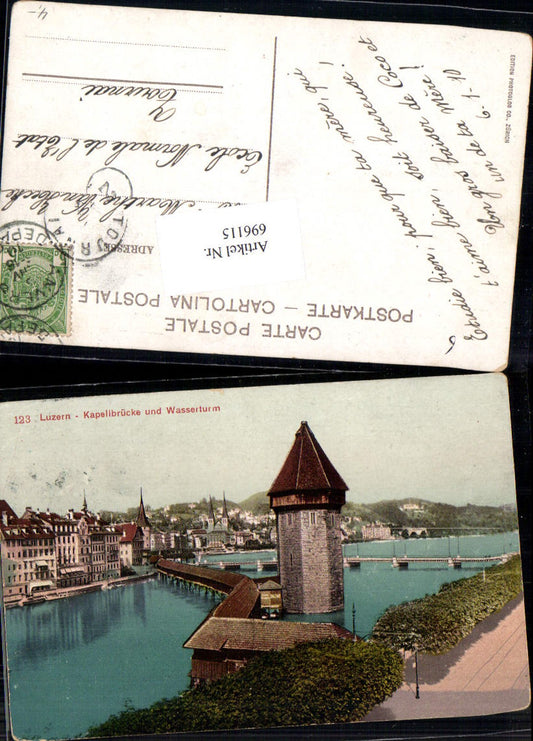 4,-
EDITION PHOTOGLOB CO., ZÜRICH
CARTE POSTALE
POSTKARTE – CARTOLINA POSTALE
ADRESSE
Marthe
École Normale de l'Etat
Tournai
Etudie bien, pour que ta mère, qui
t'aime bien, soit heureuse!
Bon gros baiser de Coco et
un de ta mère!
6-1-10
Artikel Nr.
696115
123 Luzern - Kapellbrücke und Wasserturm